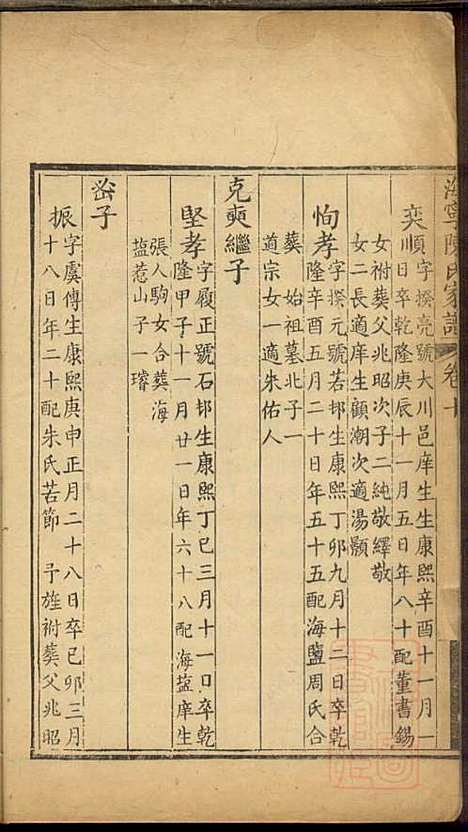 海寧陳氏家譜 卷十
奕順字揆亮號大川邑庠生生康熙辛酉十一月一
日卒乾隆庚辰十一月五日年八十配董書錫
女祔葬父兆昭次子二純敬繹敬
女二長適庠生顧潮次適湯顥
恂孝字揆元號若邨生康熙丁卯九月十二日卒乾
隆辛酉五月二十日年五十五配海鹽周氏合
葬 始祖墓北子一
道宗女一適朱佑人
克奭繼子
堅孝字履正號石邨生康熙丁巳三月十一日卒乾
隆甲子十一月廿一日年六十八配海盐庠生
張人駒女合葬海
盐惹山子一璿
嵞子
振字虞傅生康熙庚申正月二十八日卒己卯三月
十八日年二十配朱氏苦節 予旌祔葬父兆昭